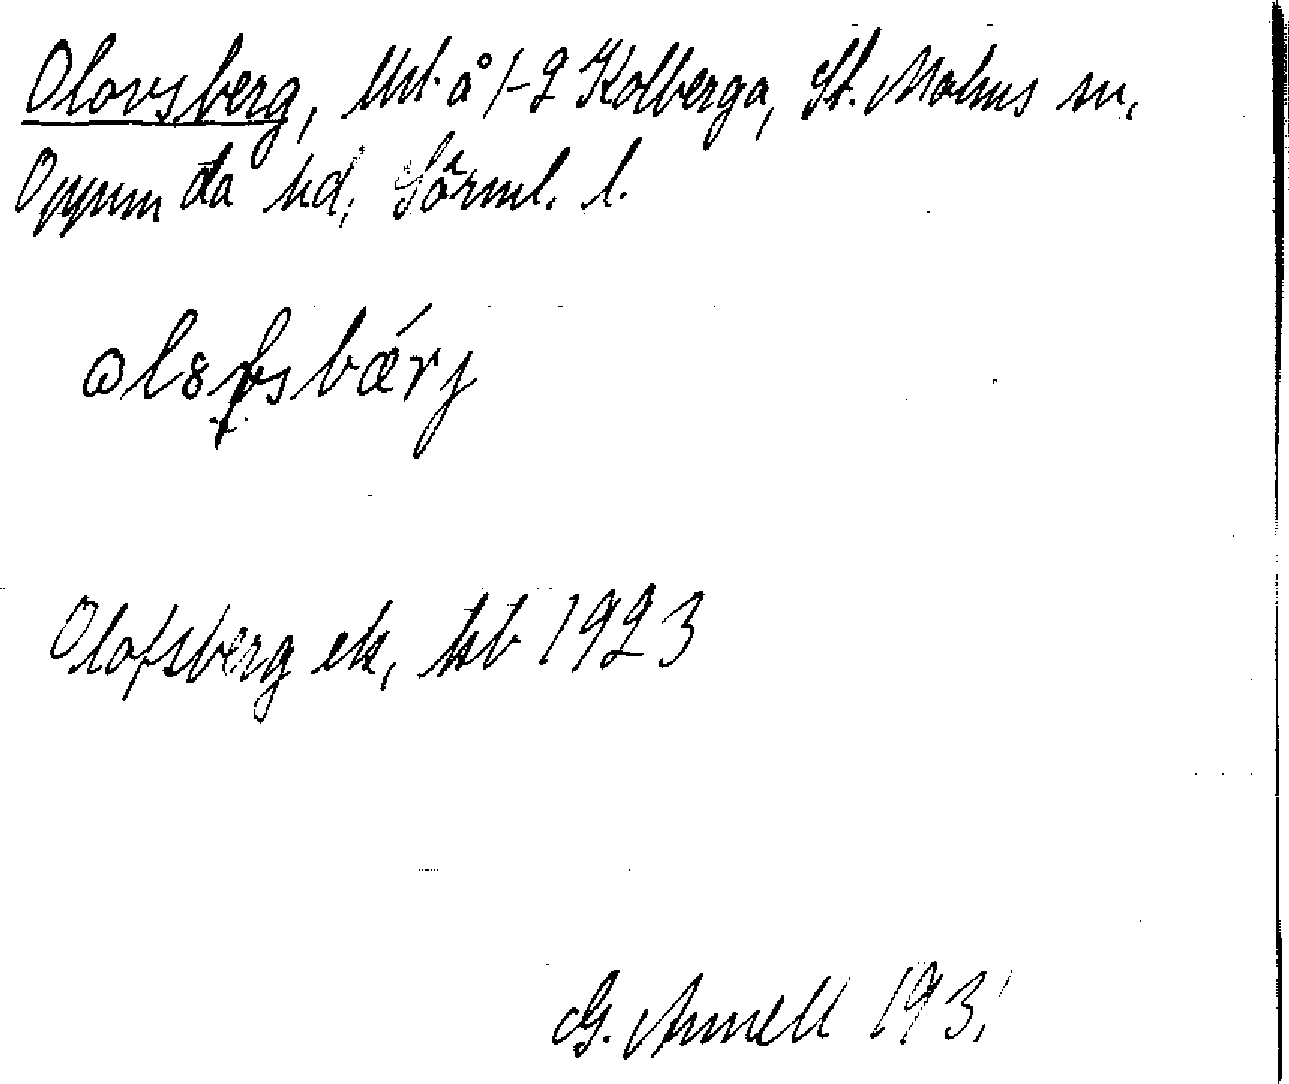 Olovsberg, Urt. å 1-2 Kolberga, St. Malms sn,
Oppunda hd, Sörml. l.
ɷlsfsbǽrj
Olofsberg ek, hb 1923
G. Annell 193